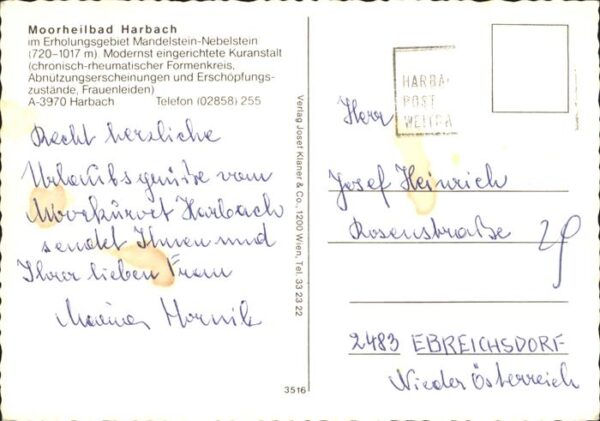 Moorheilbad Harbach
im Erholungsgebiet Mandelstein-Nebelstein
(720–1017 m). Modernst eingerichtete Kuranstalt
(chronisch-rheumatischer Formenkreis,
Abnützungserscheinungen und Erschöpfungs-
zustände, Frauenleiden)
A-3970 Harbach Telefon (02858) 255
Recht herzliche
Urlaubsgrüße vom
Moorkurort Harbach
sendet Ihnen und
Ihrer lieben Frau
Hornik
Verlag Josef Klaner & Co., 1200 Wien, Tel. 33 23 22
3516
HARBA
POST
WEITRA
Herr
Josef Heinrich
Rosenstraße
2483 EBREICHSDORF
Nieder Österreich